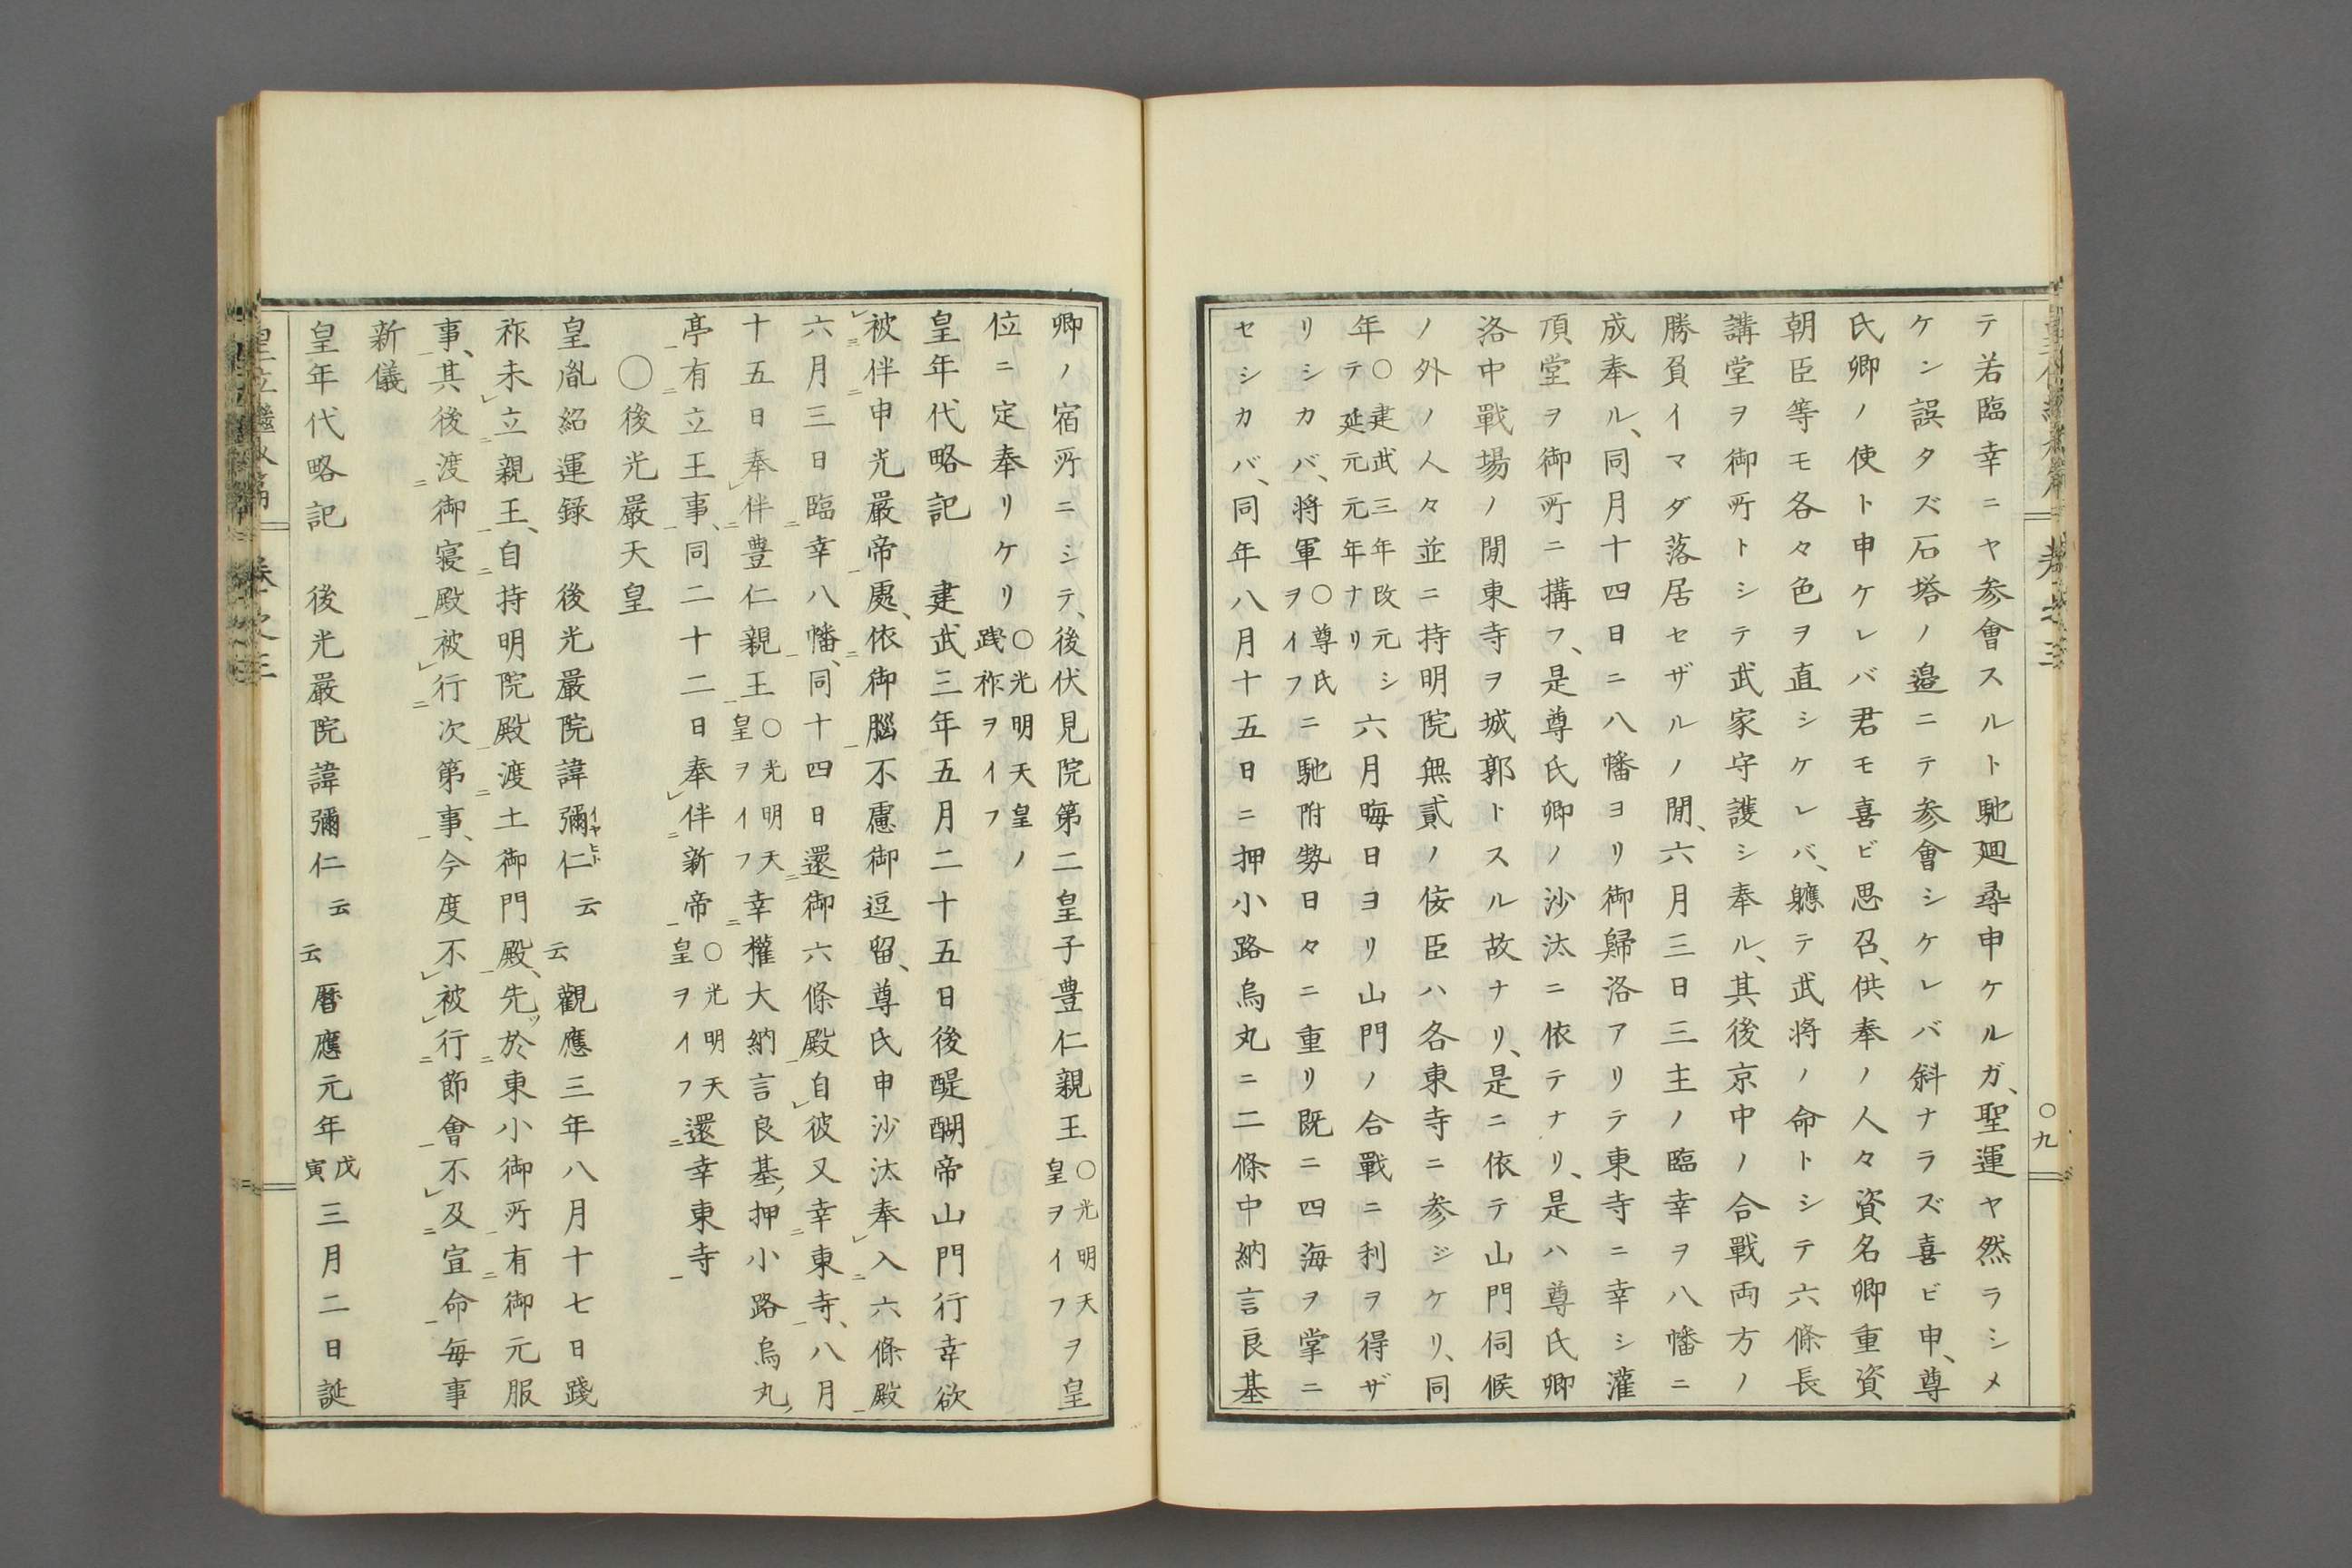 テ若臨幸ニヤ参會スルト馳廻尋申ケルガ、聖運ヤ然ラシメ
ケン誤タズ石塔ノ邉ニテ参會シケレバ斜ナラズ喜ビ申、尊
氏卿ノ使ト申ケレバ君モ喜ビ思召、供奉ノ人々資名卿重資
朝臣等モ各々色ヲ直シケレバ、軈テ武将ノ命トシテ六條長
講堂ヲ御所トシテ武家守護シ奉ル、其後京中ノ合戰両方ノ
勝負イマダ落居セザルノ間、六月三日三主ノ臨幸ヲ八幡ニ
成奉ル、同月十四日ニ八幡ヨリ御歸洛アリテ東寺ニ幸シ灌
頂堂ヲ御所ニ搆フ、是尊氏卿ノ沙汰ニ依テナリ、是ハ尊氏卿
洛中戰場ノ間東寺ヲ城郭トスル故ナリ、是ニ依テ山門伺候
ノ外ノ人々並ニ持明院無貳ノ侫臣ハ各東寺ニ参ジケリ、同
年〇建武三年改元シテ延元元年ナリ六月晦日ヨリ山門ノ合戰ニ利ヲ得ザ
リシカバ、将軍〇尊氏ヲイフニ馳附勢日々ニ重リ既ニ四海ヲ掌ニ
セシカバ、同年八月十五日ニ押小路烏丸ニ二條中納言良基
〇九
卿ノ宿所ニシテ、後伏見院第二皇子豊仁親王〇光明天皇ヲイフヲ皇
位ニ定奉リケリ〇光明天皇ノ踐祚ヲイフ
皇年代略記　建武三年五月二十五日後醍醐帝山門行幸欲
被レ伴二申光嚴帝一處、依二御腦一不慮御逗留、尊氏申沙汰奉レ入二六條殿一
六月三日臨二幸八幡一、同十四日還二御六條殿一自レ彼又幸二東寺一、八月
十五日奉レ伴二豊仁親王一〇光明天皇ヲイフ幸二權大納言良基、押小路烏丸、
亭一有二立王事一、同二十二日奉レ伴二新帝一〇光明天皇ヲイフ還二幸東寺一
〇後光嚴天皇
皇胤紹運録　後光嚴院諱彌仁イヤヒト云云觀應三年八月十七日踐
祚未レ立二親王一、自二持明院殿一渡二土御門殿一、先ヅ於二東小御所一有二御元服
事一、其後渡二御寝殿一被レ行二次第事一、今度不レ被レ行二節會一不レ及二宣命一毎事
新儀
皇年代略記　後光嚴院諱彌仁云云暦應元年戊寅三月二日誕